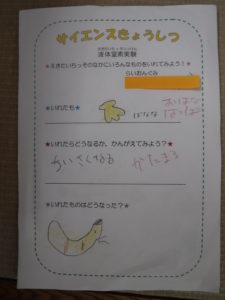 サイエンスきょうしつ
えきたいちっそじっけん
液体窒素実験
★えきたいちっそのなかにいろんなものをいれてみよう！★
らいおんぐみ
★いれたもの★
ばなな
おはな
はっぱ
★いれたらどうなるか、かんがえてみよう？★
ちいさくなる
かたまる
★いれたものはどうなった？★